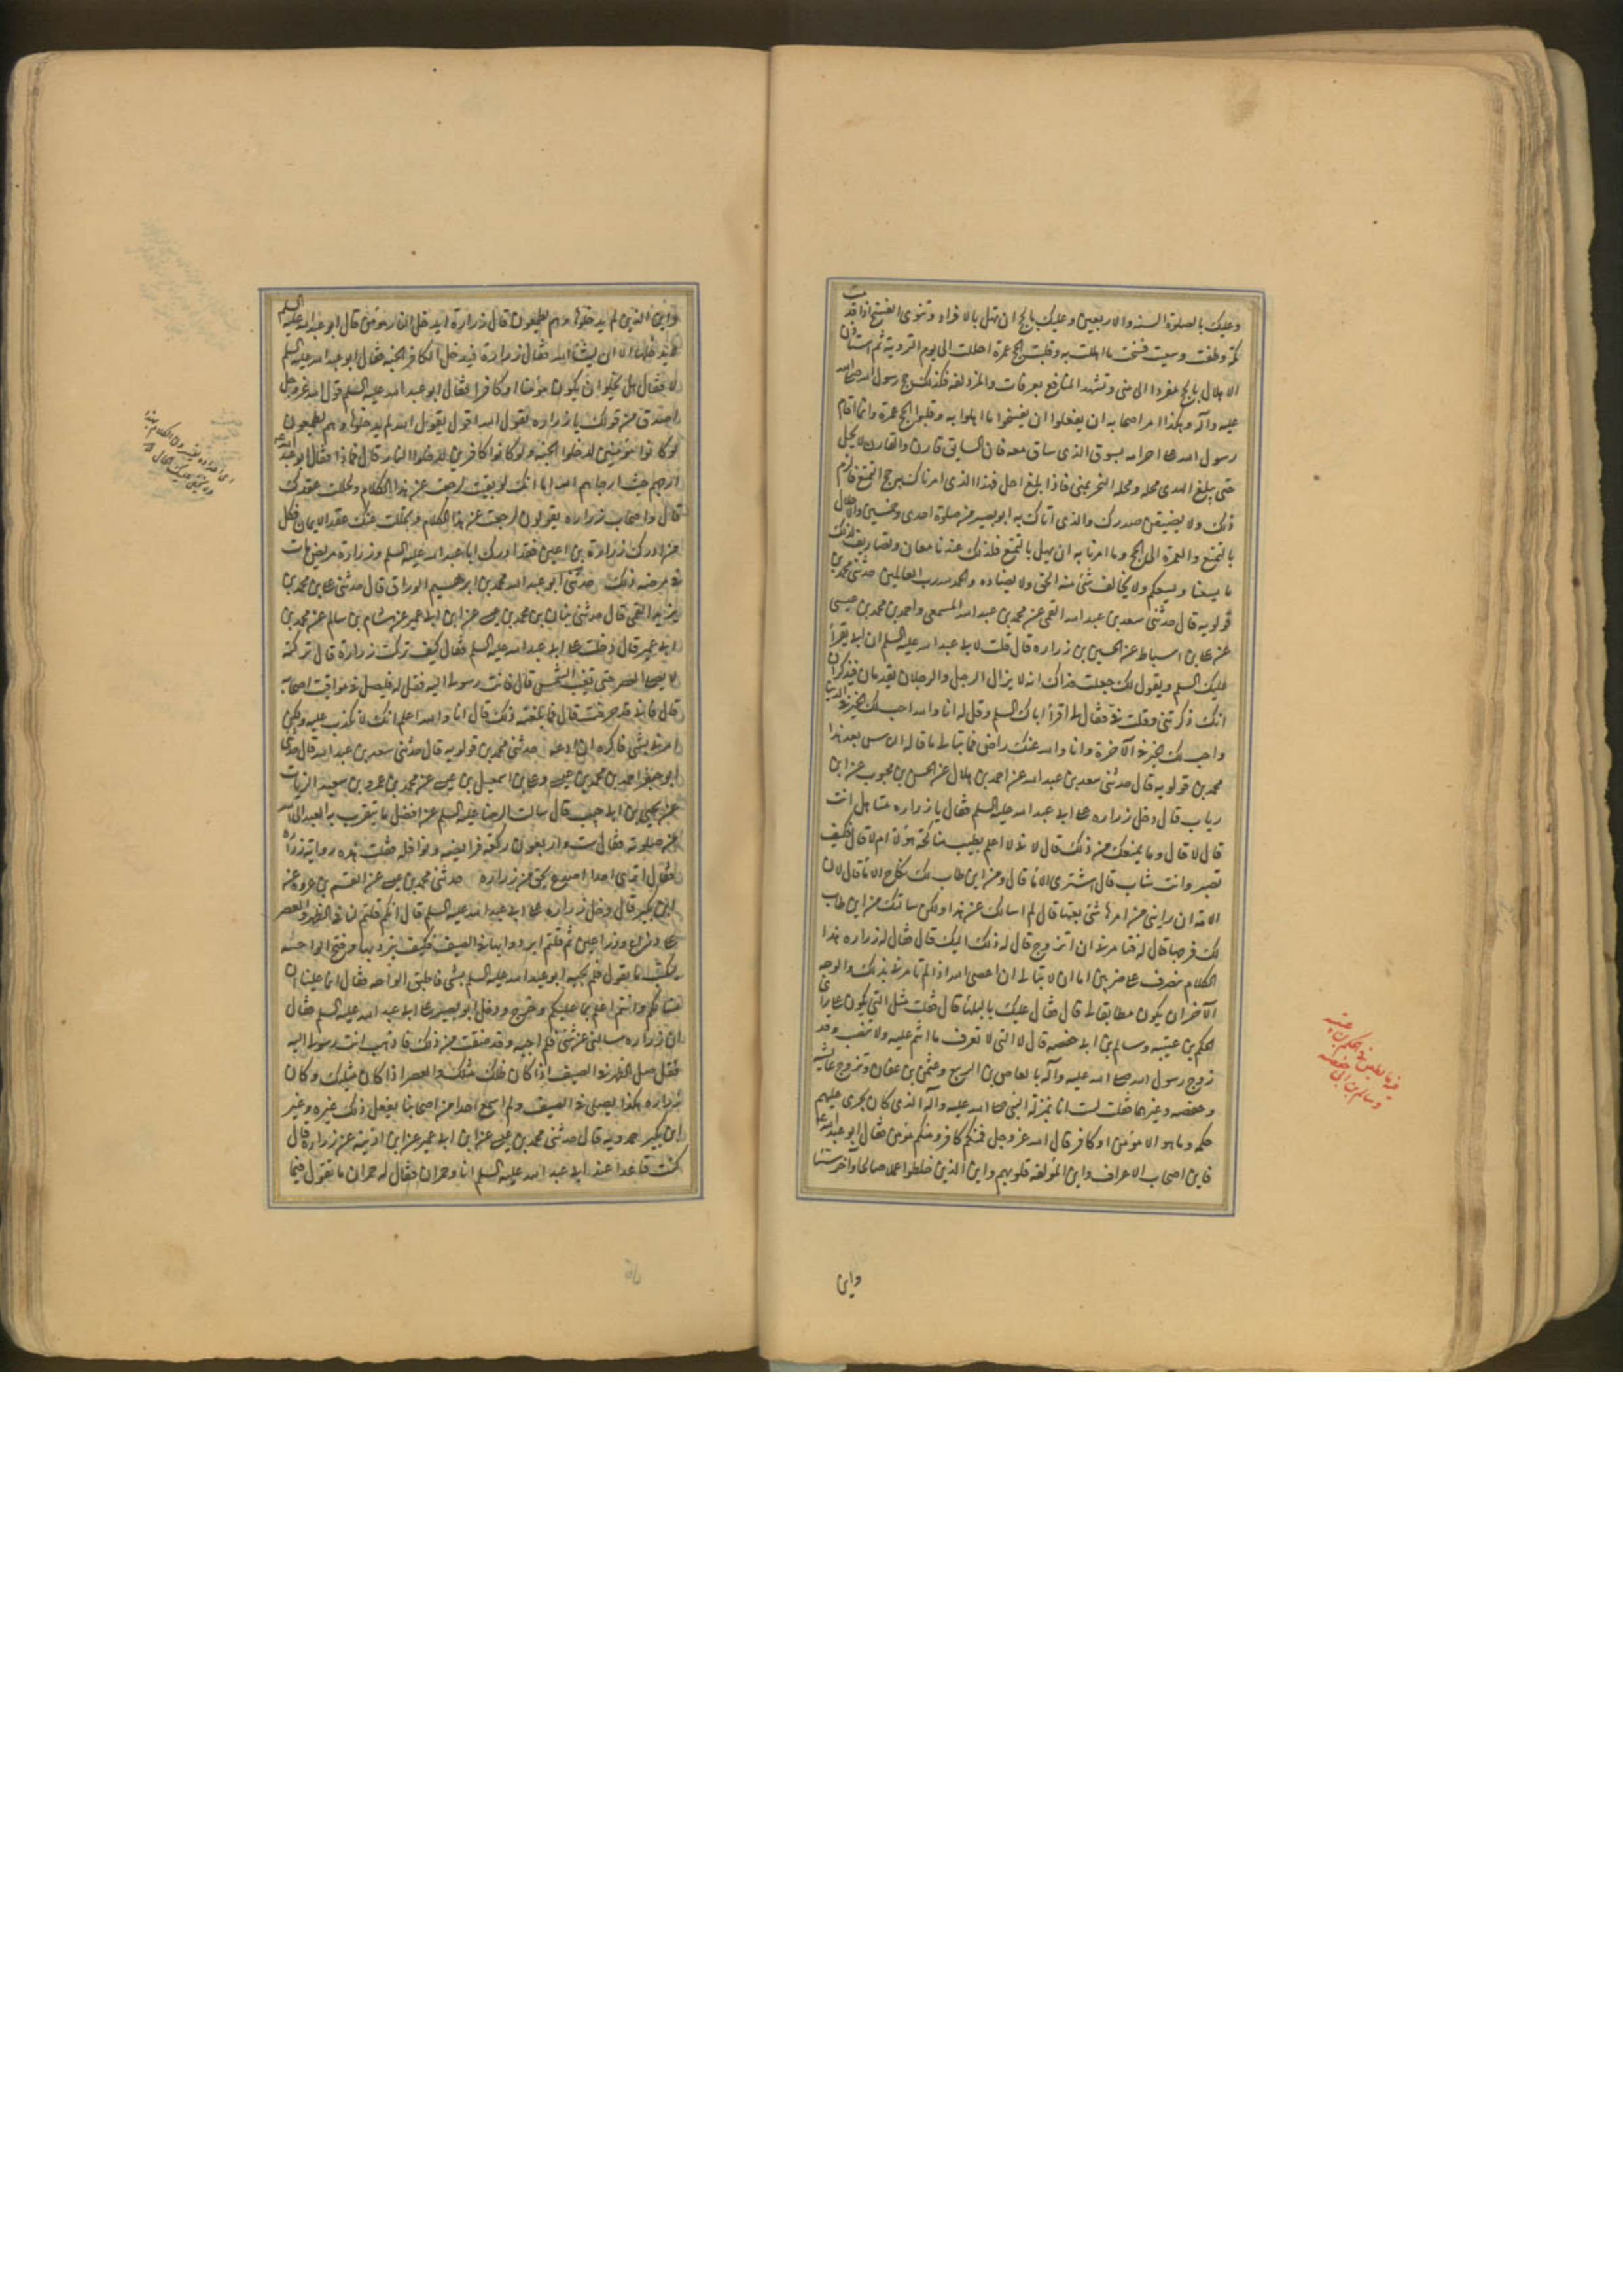 وعليك بالصلوة الستة والاربعين وعليك بالحج ان تهل بالافراد وتنوى الفسخ اذا قدمت
مكة وطفت وسعيت فسخت ما اهللت به وقلبت الحج عمرة احللت الى يوم التروية ثم استأنف
الاهلال بالحج مفردا الى منى وتشهد المنافع بعرفات والمزدلفة فكذلك حج رسول الله صلى الله
عليه وآله وهكذا امر اصحابه ان يفعلوا ان يفسخوا ما اهلوا به وقلبوا الحج عمرة وانما اقام
رسول الله صلى احرامه بسوق الذى ساق معه فان السايق قارن والقارن لا يحل
حتى يبلغ الهدى محله ومحله النحر بمنى فاذا بلغ احل فهذا الذى امرناك به حج التمتع فالزم
ذلك ولا يضيقن صدرك والذى اتاك به ابو بصير من صلوة احدى وخمسين والاهلال
بالتمتع والعمرة الى الحج وما امرنا به ان يهل بالتمتع فلذلك عندنا معان وتصاريف لذلك
ما يسعنا ويسعكم ولا يخالف شئ منه الحق ولا يضاده والحمد لله رب العالمين حدثنى محمد بن
قولويه قال حدثنى سعد بن عبد الله القمى عن محمد بن عبد الله المسمعى واحمد بن محمد بن عيسى
عن على بن اسباط عن الحسين بن زرارة قال قلت لابى عبد الله عليه السلم ان ابى يقرأ
عليك السلم ويقول لك جعلت فداك انه لا يزال الرجل والرجلان يقدمان فيذكران
انك ذكرتنى وقلت فىّ فقال لى اقرأ اباك السلم وقل له انا والله احب لك الخير فى الدنيا
واحب لك الخير فى الآخرة وانا والله عنك راضى فما تبالى ما قال الناس بعد هذا
محمد بن قولويه قال حدثنى سعد بن عبد الله عن احمد بن هلال عن الحسن بن محبوب عن ابن
رياب قال دخل زرارة على ابى عبد الله عليه السلم فقال يا زرارة متاهل انت
قال لا قال وما يمنعك من ذلك قال لانى لا اعلم يطيب مناكحة هؤلاء ام لا قال فكيف
تصبر وانت شاب قال اشترى الاماء قال ومن اين طاب لك نكاح الاماء قال لان
الامة ان رابنى من امرها شئ بعتها قال لم اسالك عن هذا ولكن سالتك من اين طاب
لك فرجها قال له فتامرنى ان اتزوج قال له ذلك اليك قال فقال له زرارة هذا
الكلام ينصرف على ضربين اما ان لا تبالى ان اعصى الله اذ لم تامرنى بذلك والوجه
الآخر ان يكون مطلقا لى قال فقال عليك بالبلهاء قال فقلت مثل التى يكون على راى
الحكم بن عتيبة وسالم بن ابى حفصه قال لا التى لا تعرف ما انتم عليه ولا تنصب وقد
زوج رسول الله صلى الله عليه وآله بالعاص بن الربيع وعثمن بن عفان وتزوج عايشه
وحفصه وغيرهما فقلت لست انا بمنزلة النبى صلى الله عليه وآله الذى كان يجرى عليهم
حكمه وما هو الا مؤمن او كافر قال الله عز وجل فمنكم كافر ومنكم مؤمن فقال ابو عبد الله عليه
فاين اصحاب الاعراف واين المؤلفة قلوبهم واين الذين خلطوا عملا صالحا وآخر سيئا
واين
واين الذين لم يدخلوها وهم يطمعون قال زرارة ايدخل النار مؤمن قال ابو عبد الله عليه السلم
لا يدخلها الا ان يشاء الله فقال زرارة فيدخل الكافر الجنه فقال ابو عبد الله عليه السلم
لا فقال هل يخلوا ان يكون مؤمنا او كافرا فقال ابو عبد الله عليه السلم قول الله عز وجل
اصدق من قولك يا زرارة بقول الله اقول يقول الله لم يدخلوها وهم يطمعون
لو كانوا مؤمنين لدخلوا الجنه ولو كانوا كافرين لدخلوا النار قال فماذا فقال ابو عبد الله
ارجهم حيث ارجاهم الله اما انك لو بقيت لرجعت عن هذا الكلام ولحللت عقدك
قال واصحاب زرارة يقولون لرجعت عن هذا الكلام وتحللت عنك عقد الايمان فكل
من ادرك زرارة بن اعين فقد ادرك ابا عبد الله عليه السلم وزرارة مريض مات
فى مرضه ذلك حدثنى ابو عبد الله محمد بن ابرهيم الوراق قال حدثنى على بن محمد بن
يزيد القمى قال حدثنى بنان بن محمد بن عيسى عن ابن ابى عمير عن هشام بن سالم عن محمد بن
ابى عمير قال دخلت على ابى عبد الله عليه السلم فقال كيف تركت زرارة قال تركته
لا يصلى العصر حتى تغيب الشمس قال فانت رسولى اليه فقل له فليصل فى مواقيت اصحابه
قال فانى قد حرقت قال فابلغته ذلك قال انا والله اعلم انك لم تكذب عليه ولكن
امرنى بشئ فاكره ان ادعه حدثنى محمد بن قولويه قال حدثنى سعد بن عبد الله قال حدثنى
ابو جعفر احمد بن محمد بن عيسى وعلى بن اسمعيل بن عيسى عن محمد بن عمرو بن سعيد الزيات
عن يحيى بن ابى حبيب قال سالت الرضا عليه السلم عن افضل ما يتقرب به العبد الى الله
من صلوته فقال ست واربعون ركعة فرايضه ونوافله فقلت هذه رواية زرارة
فقال اترى احدا اصدع بحق من زرارة حدثنى محمد بن عيسى عن القسم بن عروة عن
ابن بكير قال دخل زرارة على ابى عبد الله عليه السلم قال انكم قلتم لنا فى الظهر والعصر
على ذراع وذراعين ثم قلتم ابردوا بها فى الصيف فكيف الابراد بها وفتح الواحه
ليكتب ما يقول فلم يجبه ابو عبد الله عليه السلم بشئ فاطبق الواحه فقال انما علينا ان
نسالكم وانتم اعلم بما عليكم وخرج ودخل ابو بصير على ابى عبد الله عليه السلم فقال
ان زرارة سالنى عن شئ فلم اجبه وقد ضقت من ذلك فاذهب انت رسولى اليه
فقل صل الظهر فى الصيف اذا كان ظلك مثلك والعصر اذا كان مثليك وكان
زرارة هكذا يصلى فى الصيف ولم اسمع احدا من اصحابنا يفعل ذلك غيره وغير
ابن بكير حمدويه قال حدثنى محمد بن عيسى عن ابن ابى عمير عن ابن اذينه عن زرارة قال
كنت قاعدا عند ابى عبد الله عليه السلم انا وحمران فقال له حمران ما تقول فيما